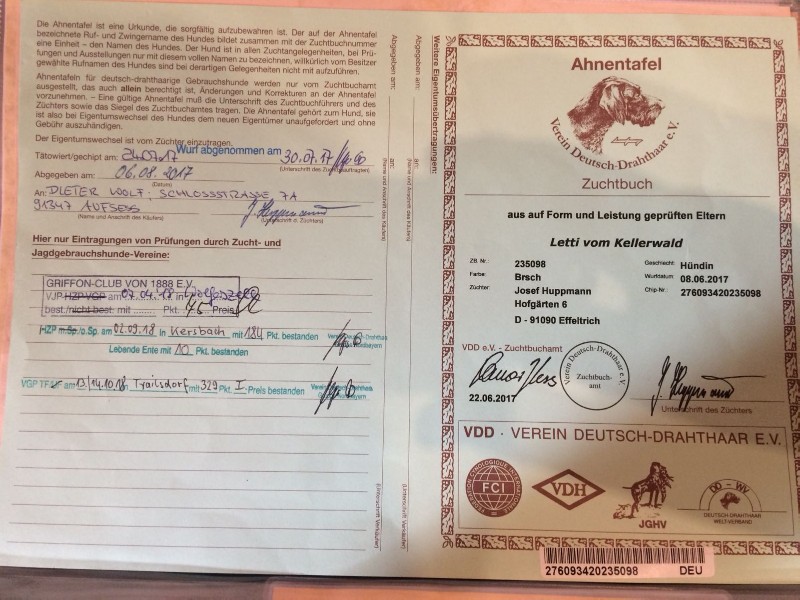 Die Ahnentafel ist eine Urkunde, die sorgfältig aufzubewahren ist. Der auf der Ahnentafel
bezeichnete Ruf- und Zwingername des Hundes bildet zusammen mit der Zuchtbuchnummer
eine Einheit – den Namen des Hundes. Der Hund ist in allen Zuchtangelegenheiten, bei Prü-
fungen und Ausstellungen nur mit diesem vollen Namen zu bezeichnen, willkürlich vom Besitzer
gewählte Rufnamen des Hundes sind bei derartigen Gelegenheiten nicht mit aufzuführen.
Ahnentafeln für deutsch-drahthaarige Gebrauchshunde werden nur vom Zuchtbuchamt
ausgestellt, das auch allein berechtigt ist, Änderungen und Korrekturen an der Ahnentafel
vorzunehmen. – Eine gültige Ahnentafel muß die Unterschrift des Zuchtbuchführers und des
Züchters sowie das Siegel des Zuchtbuchamtes tragen. Die Ahnentafel gehört zum Hund, sie
ist also bei Eigentumswechsel des Hundes dem neuen Eigentümer unaufgefordert und ohne
Gebühr auszuhändigen.
Der Eigentumswechsel ist vom Züchter einzutragen.
Tätowiert/gechipt am: 24.07.17 Wurf abgenommen am 30.07.17
(Unterschrift des Zuchtbeauftragten)
Abgegeben am: 06.08.2017
(Datum)
An: DIETER WOLF, SCHLOSSSTRASSE 7A
91347 AUFSESS
(Name und Anschrift des Käufers) (Unterschrift d. Züchters)
Hier nur Eintragungen von Prüfungen durch Zucht- und
Jagdgebrauchshunde-Vereine:
GRIFFON-CLUB VON 1888 E.V.
VJP HZP VGP am 07.04.18 in
best./nicht best. mit ....... Pkt. Preis
HZP m.Sp./o.Sp. am 02.09.18 in Kersbach mit 184 Pkt. bestanden
Lebende Ente mit 10 Pkt. bestanden
VGP TF/ÜF am 13/14.10.18 in Trailsdorf mit 329 Pkt. I. Preis bestanden
Abgegeben am:
an:
(Name und Anschrift des Käufers)
(Unterschrift des Verkäufers)
Weitere Eigentumsübertragungen:
Abgegeben am:
an:
(Name und Anschrift des Käufers)
(Unterschrift des Verkäufers)
Ahnentafel
Verein Deutsch-Drahthaar e.V.
Zuchtbuch
aus auf Form und Leistung geprüften Eltern
Letti vom Kellerwald
ZB. Nr.: 235098 Geschlecht: Hündin
Farbe: Brsch Wurfdatum: 08.06.2017
Züchter: Josef Huppmann Chip-Nr.: 276093420235098
Hofgärten 6
D - 91090 Effeltrich
VDD e.V. - Zuchtbuchamt
Verein Deutsch-Drahthaar e.V.
Zuchtbuch-
amt
22.06.2017
Unterschrift des Züchters
VDD · VEREIN DEUTSCH-DRAHTHAAR E.V.
FCI
VDH
JGHV
DD – WV
DEUTSCH-DRAHTHAAR
WELT-VERBAND
276093420235098 DEU